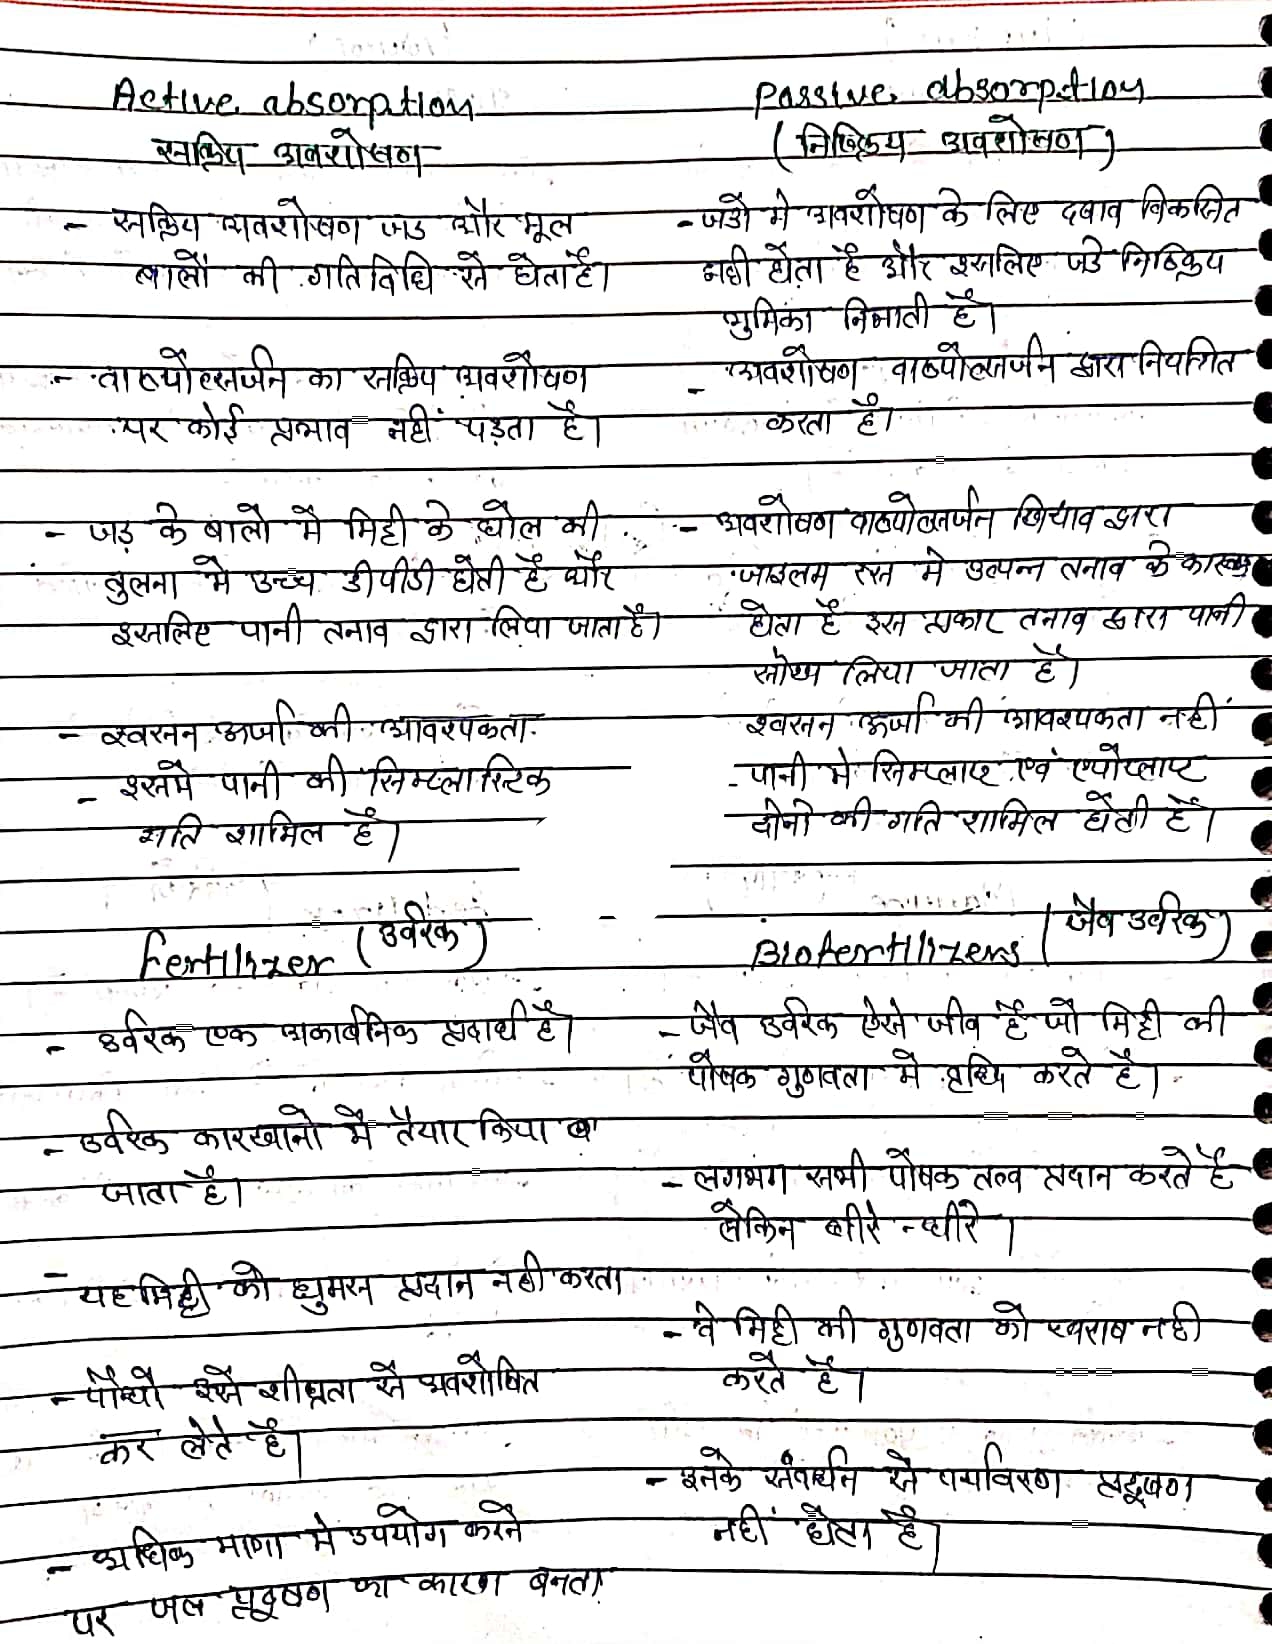 Active absorption
सक्रिय अवशोषण
- सक्रिय अवशोषण जड और मूल
बालों की गतिविधि से होता है।
- वाष्पोत्सर्जन का सक्रिय अवशोषण
पर कोई प्रभाव नहीं पड़ता है।
- जड़ के बालो मे मिट्टी के घोल की
तुलना मे उच्च डीपीडी होती है और
इसलिए पानी तनाव द्वारा लिया जाता है।
- श्वसन ऊर्जा की आवश्यकता
- इसमे पानी की सिम्प्लास्टिक
गति शामिल है।
Passive absorption
(निष्क्रिय अवशोषण)
- जडो मे अवशोषण के लिए दबाव विकसित
नही होता है और इसलिए जडे निष्क्रिय
भुमिका निभाती है।
- अवशोषण वाष्पोत्सर्जन द्वारा नियत्रित
करता है।
- अवशोषण वाष्पोत्सर्जन खिचाव द्वारा
जाइलम रस मे उत्पन्न तनाव के कारण
होता है इस प्रकार तनाव द्वारा पानी
सोख लिया जाता है।
श्वसन ऊर्जा की आवश्यकता नहीं
- पानी मे सिम्प्लास्ट एवं एपोप्लास्ट
दोनो की गति शामिल होती है।
Fertilizer (उर्वरक)
- उर्वरक एक अकार्बनिक प्रदार्थ है।
- उर्वरक कारखानो मे तैयार किया
जाता है।
- यह मिट्टी को ह्युमस प्रदान नही करता
- पौधो इसे शीघ्रता से अवशोषित
कर लेते है।
- अधिक मात्रा मे उपयोग करने
पर जल प्रदुषण का कारण बनता
Biofertilizers (जैव उर्वरक)
- जैव उर्वरक ऐसे जीव है जो मिट्टी की
पोषक गुणवता मे वृध्दि करते है।
- लगभग सभी पोषक तत्व प्रदान करते है
लेकिन धीरे-धीरे।
- वे मिट्टी की गुणवता को खराब नही
करते है।
- इनके संवर्धन से पर्यावरण प्रदूषण
नहीं होता है।